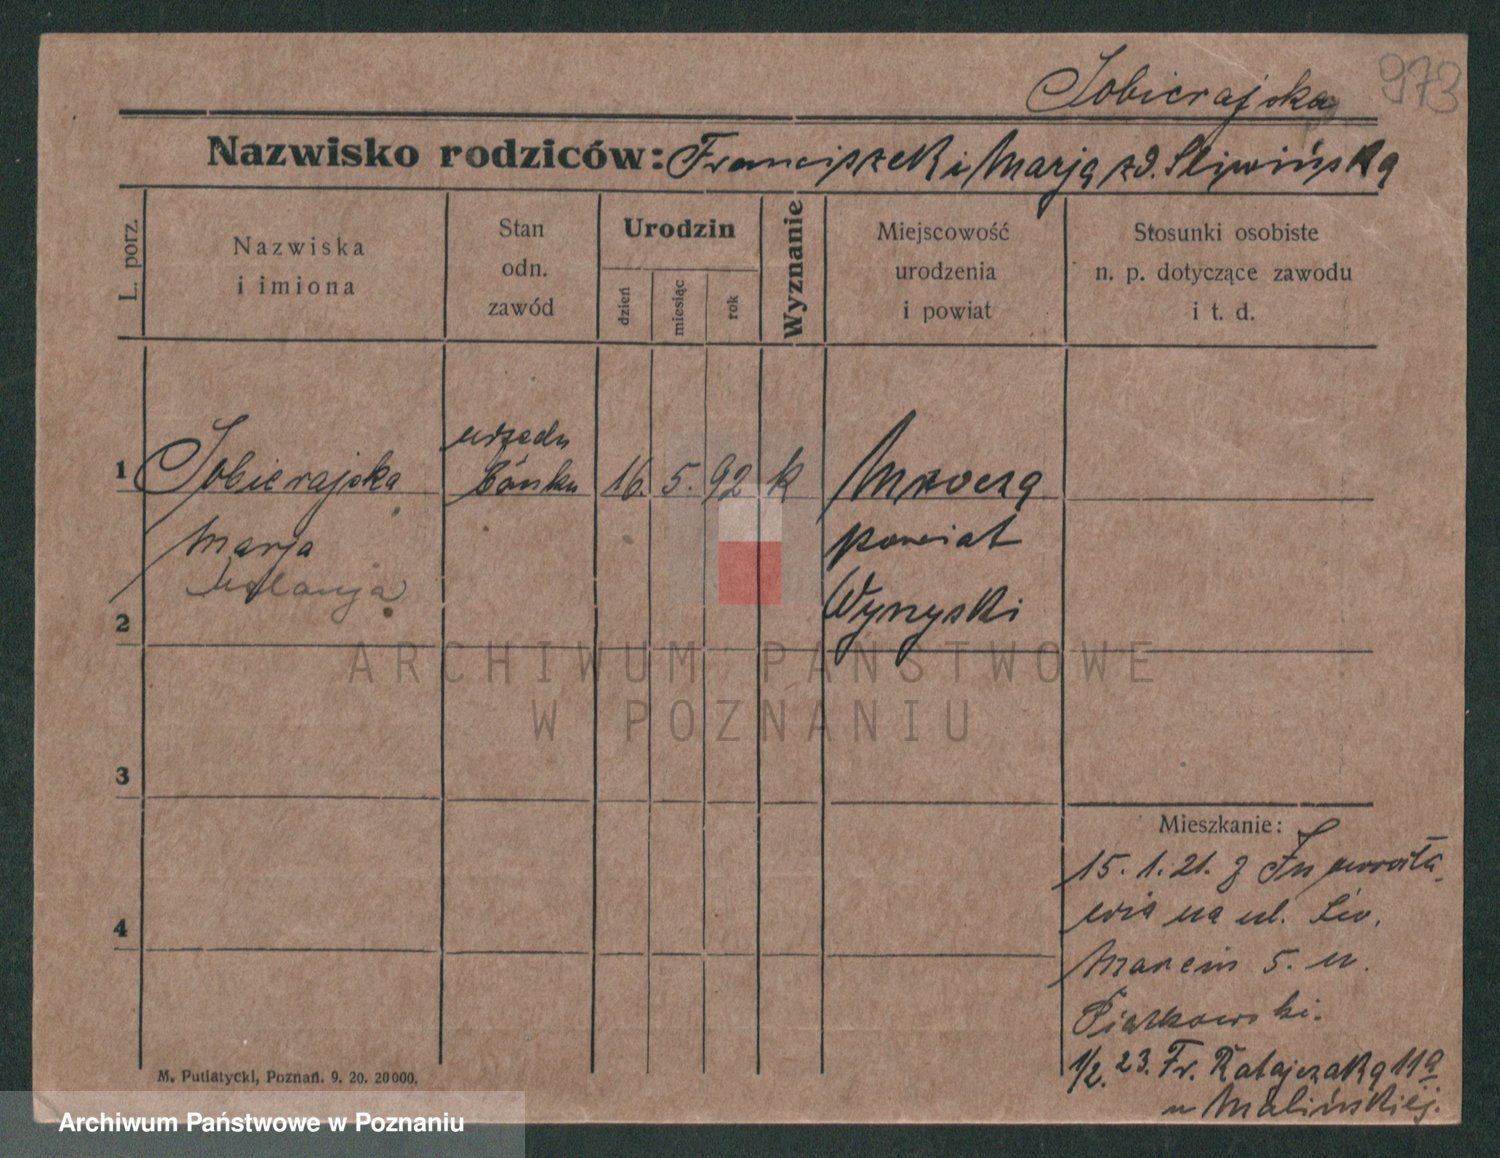 973
Sobierajska
Nazwisko rodziców: Franciszek i Marja zd. Sliwińska
L. porz.
Nazwiska
i imiona
Stan
odn.
zawód
Urodzin
dzień
miesiąc
rok
Wyznanie
Miejscowość
urodzenia
i powiat
Stosunki osobiste
n. p. dotyczące zawodu
i t. d.
1
Sobierajska
Marja
Melanja
Banku
16. 5. 92 k
Mrocza
powiat
Wyrzyski
2
3
4
Mieszkanie:
15. 1. 21. z
na ul. Św.
Marcin 5. u.
Piątkowski.
1/2. 23. Fr. Ratajczaka 11a
u Malińskiej.
M. Putiatycki, Poznań. 9. 20. 20000.
ARCHIWUM PAŃSTWOWE
W POZNANIU
Archiwum Państwowe w Poznaniu